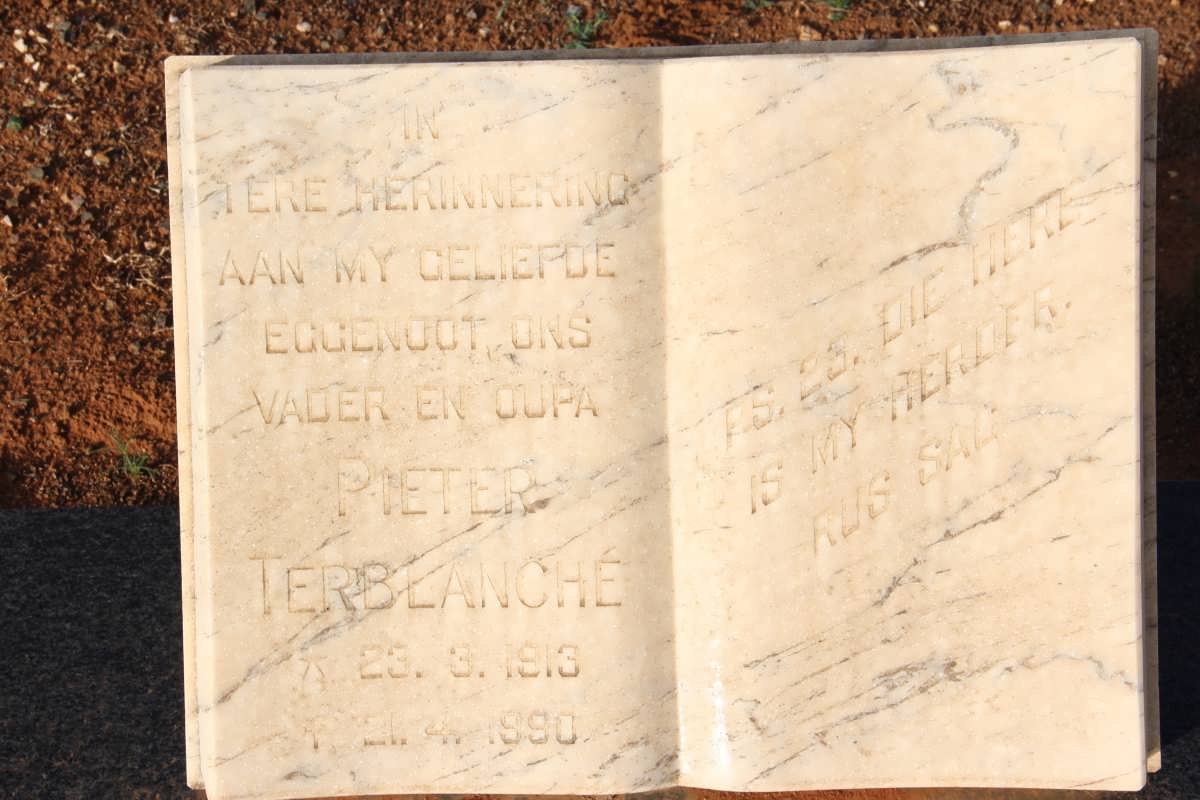 IN
TERE HERINNERING
AAN MY GELIEFDE
EGGENOOT, ONS
VADER EN OUPA
PIETER
TERBLANCHÉ
23. 3. 1913
† 21. 4. 1990
PS. 23. DIE HERE
IS MY HERDER.
RUS SAG